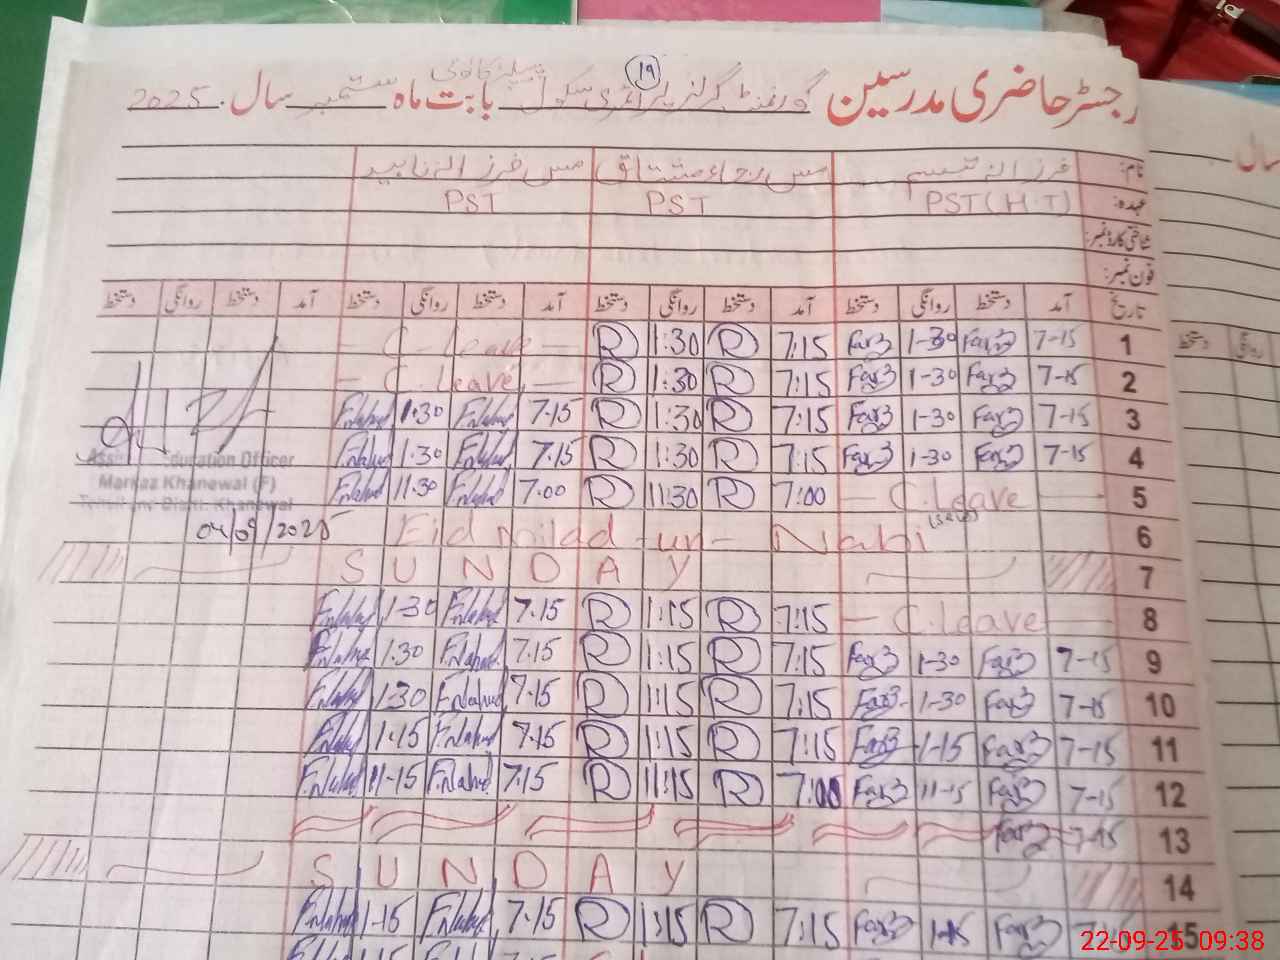 19
رجسٹر حاضری مدرسین گورنمنٹ گرلز پرائمری سکول بابت ماہ ستمبر سال 2025
نام: فرزانہ تبسم مس رجاء مشتاق مس فرزانہ ناہید
عہدہ: PST (H.T) PST PST
شناختی کارڈ نمبر:
فون نمبر:
تاریخ آمد دستخط روانگی دستخط آمد دستخط روانگی دستخط آمد دستخط روانگی دستخط آمد دستخط روانگی دستخط
1 7-15 Far3 1-30 Far3 7:15 R 1:30 R C. Leave
2 7-15 Far3 1-30 Far3 7:15 R 1:30 R C. Leave
3 7-15 Far3 1-30 Far3 7:15 R 1:30 R 7.15 1.30
4 7-15 Far3 1-30 Far3 7:15 R 1:30 R 7.15 1.30
5 C. Leave 7:00 R 11:30 R 7.00 11.30
6 Eid milad-un-Nabi
7 SUNDAY
8 C. Leave 7:15 R 1:15 R 7.15 1-30
9 7-15 Far3 1-30 Far3 7:15 R 1:15 R 7.15 1.30
10 7-15 Far3 1-30 Far3 7:15 R 1:15 R 7.15 1-30
11 7-15 Far3 1-15 Far3 7:15 R 1:15 R 7.15 1-15
12 7-15 Far3 11-15 Far3 7:00 R 11:15 R 7.15 11-15
13 7-15 Far3
14 SUNDAY
15 Far3 1-15 Far3 7:15 R 1:15 R 7.15 1-15
Education Officer
Markaz Khanewal (F)
Khanewal
04/09/2025
سال
دستخط روانگی
22-09-25 09:38